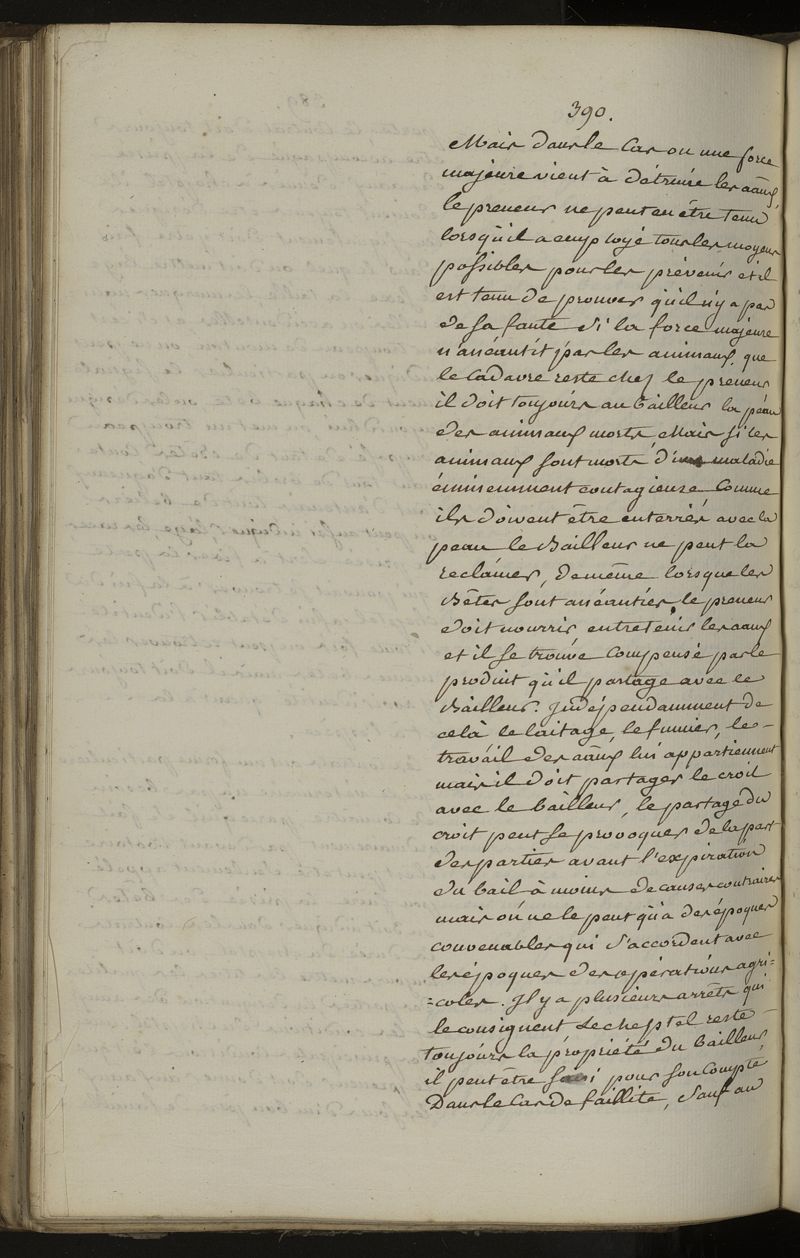 390.
Mais dans le Cas ou une force
majeure vient à détruire les aãux,
le preneur ne peut en être tenu
lorsqu'il a employé tous les moyens
possibles pour les prévenir et il
est tenu de prouver qu'il n'y a pas
de sa faute Si la force majeure
n'anéantit pas les animaux, que
le Cadavre reste chez le preneur
il doit toujours au bailleur la peau
des animaux morts, Mais si les
animaux sont morts d'une maladie
éminemment contagieuse Comme
ils doivent être enterrés avec la
peau le Bailleur ne peut la
réclamer, de même lorsque les
Bêtes sont anéanties, le preneur
doit nourrir entretenir les aaux
et il se trouve Compensé par le
produit qu'il partage avec le
Bailleur. Indépendamment de
celà le laitage, le fumier, le
travail des aãux lui appartiennent
mais il doit partager le croit
avec le bailleur, le partage du
croit peut se provoquer de la part
des parties avant l'expiration
du bail à moins de causes contraires
mais on ne le peut qu'à des époques
convenables qui s'accordent avec
les époques des opérations agri=
=coles. Il y a plusieurs arrêts qui
le consignent Le cheptel reste
toujours la propriété du bailleur
il peut être saisi pour son Compte
Dans le Cas de faillite, Sauf au